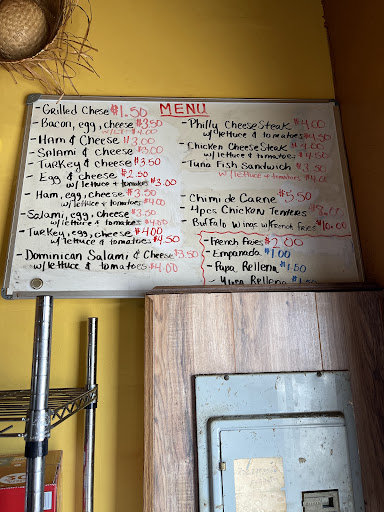 MENU
- Grilled Chese $1.50
- Bacon, egg, cheese $3.50
w/L&T $4.00
- Ham & Cheese $3.00
- Salami & cheese $3.00
- Turkey & cheese $3.50
- Egg & cheese $2.50
w/ lettuce & tomatoes $3.00
- Ham, egg, cheese $3.50
w/ lettuce & tomatoes $4.00
- Salami, egg, cheese $3.50
w/ lettuce & tomatoes $4.50
- Turkey, egg, cheese $4.00
w/ lettuce & tomatoes $4.50
- Dominican Salami & Cheese $3.50
w/ lettuce & tomatoes $4.00
- Philly Cheese Steak $4.00
w/ lettuce & tomatoes $4.50
- Chicken Cheese Steak $4.00
w/ lettuce & tomatoes $4.50
- Tuna Fish Sandwich $3.50
w/ lettuce & tomatoes $4.00
- Chimi de Carne $5.50
- 4pcs Chicken Tenders
- Buffalo Wings w/ French Fries
- French Fries $2.00
- Empanada $1.00
- Papa Rellena $1.50
- Yuca Rellena